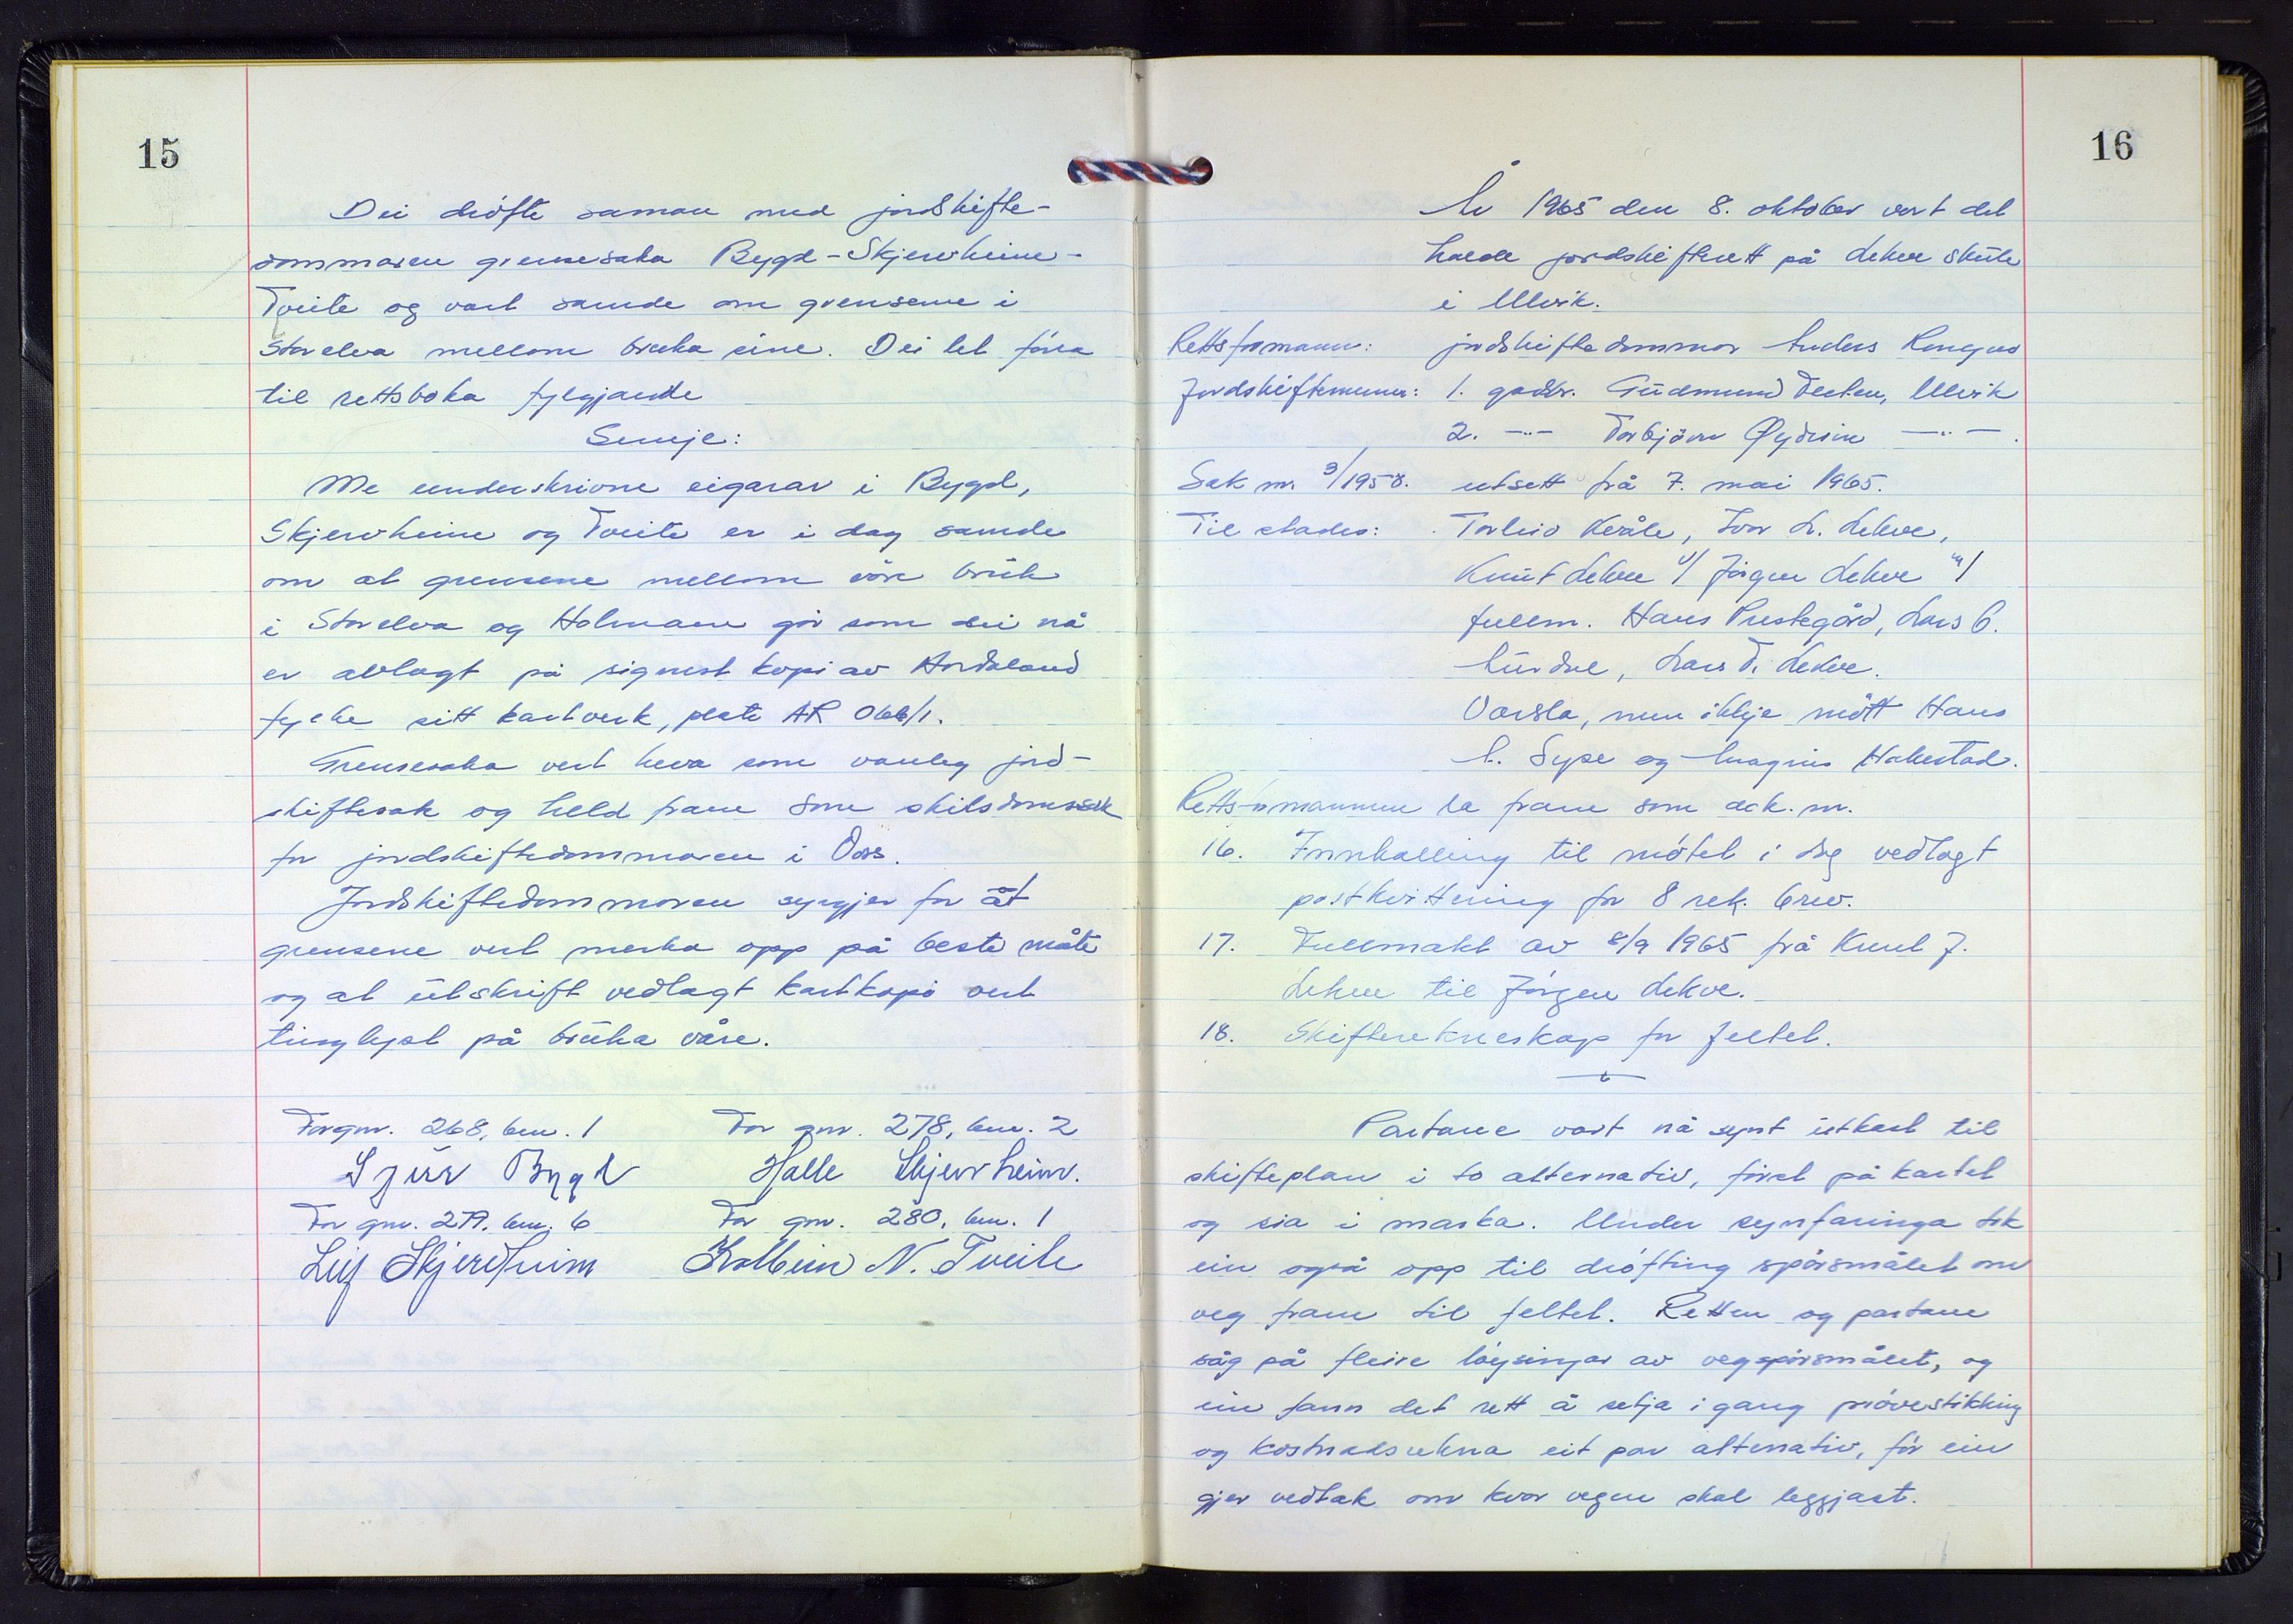 15
Dei drøfte saman med jordskifte-
dommaren grensesaka Bygd-Skjervheim-
Tveite og vart samde om grensene i
Storelva mellom bruka sine. Dei let føra
til rettsboka fylgjande
Semje:
Me underskrivne eigarar i Bygd,
Skjervheim og Tveite er i dag samde
om at grensene mellom våre bruk
i Storelva og Holmane går som dei nå
er avlagt på signert kopi av Hordaland
fylke sitt kartverk, plate AR 066/1.
Grensesaka vert heva som vanleg jord-
skiftesak og held fram som skilsdomssak
for jordskiftedommaren i Voss.
Jordskiftedommaren syrgjer for at
grensene vert merka opp på beste måte
og at utskrift vedlagt kartkopi vert
tinglyst på bruka våre.
For gnr. 268, bnr. 1 For gnr. 278, bnr. 2
Sjur Bygd Halle Skjervheim.
For gnr. 279, bnr. 6 For gnr. 280, bnr. 1
Leif Skjervheim Kolbein N. Tveite
16
År 1965 den 8. oktober vart det
halde jordskifterett på Lekve skule
i Ulvik.
Rettsformann: jordskiftedommar Anders Rongen
Jordskiftemenn: 1. gardbr. Gudmund Tveiten, Ulvik
2. —"— Torbjørn Øydvin —"—.
Sak nr. 3/1958. utsett frå 7. mai 1965.
Til stades: Torleiv Kvåle, Ivar L. Lekve,
Knut Lekve v/ Jørgen Lekve m/
fullm. Hans Prestegård, Lars B.
Lars T. Lekve.
Varsla, men ikkje møtt Hans
A. Sype og Magnus Hakestad.
Rettsformannen la fram som dok. nr.
16. Innkalling til møtet i dag vedlagt
postkvittering for 8 rek. brev.
17. Fullmakt av 8/9 1965 frå Knut J.
Lekve til Jørgen Lekve.
18. Skifterekneskap for feltet.
Partane vart nå synt utkast til
skifteplan i to alternativ, først på kartet
og sia i marka. Under synfaringa tok
ein også opp til drøfting spørsmålet om
veg fram til feltet. Retten og partane
såg på fleire løysingar av vegspørsmålet, og
ein fann det rett å setja i gang prøvestikking
og kostnadsrekna eit par alternativ, før ein
gjer vedtak om kvar vegen skal leggjast.